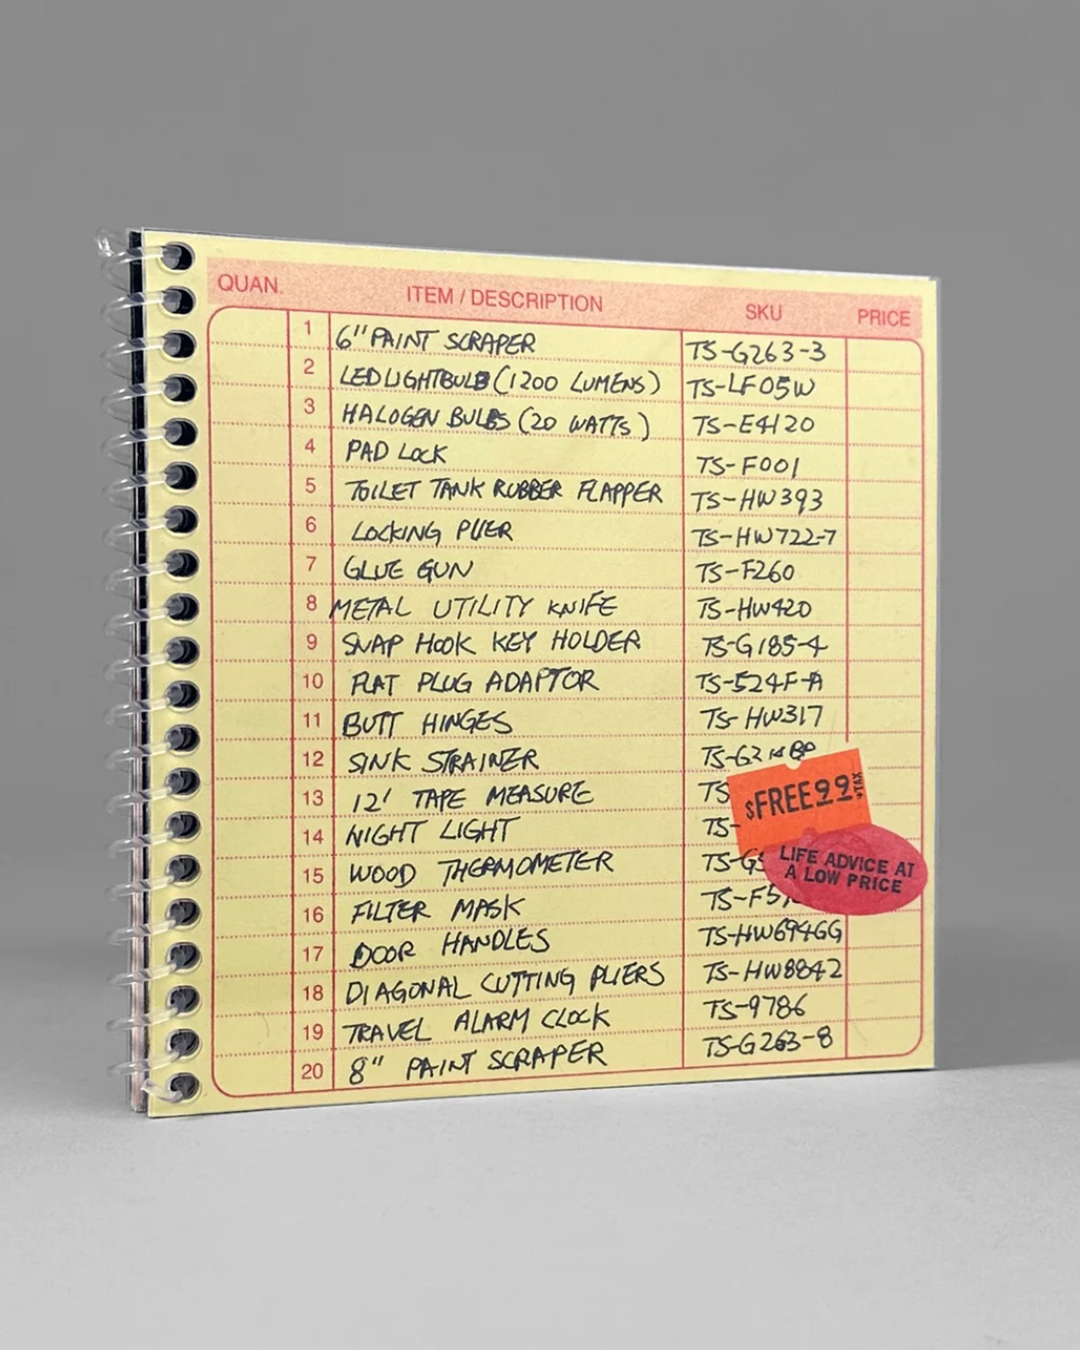 QUAN. ITEM / DESCRIPTION SKU PRICE
1 6" PAINT SCRAPER TS-G263-3
2 LED LIGHTBULB (1200 LUMENS) TS-LF05W
3 HALOGEN BULBS (20 WATTS) TS-E4120
4 PAD LOCK TS-F001
5 TOILET TANK RUBBER FLAPPER TS-HW393
6 LOCKING PLIER TS-HW722-7
7 GLUE GUN TS-F260
8 METAL UTILITY KNIFE TS-HW420
9 SNAP HOOK KEY HOLDER TS-G185-4
10 FLAT PLUG ADAPTOR TS-524F-A
11 BUTT HINGES TS-HW317
12 SINK STRAINER
13 12' TAPE MEASURE TS
14 NIGHT LIGHT TS-
15 WOOD THERMOMETER
16 FILTER MASK
17 DOOR HANDLES TS-HW694GG
18 DIAGONAL CUTTING PLIERS TS-HW8842
19 TRAVEL ALARM CLOCK TS-9786
20 8" PAINT SCRAPER TS-G263-8
$FREE99 +TAX
LIFE ADVICE AT
A LOW PRICE